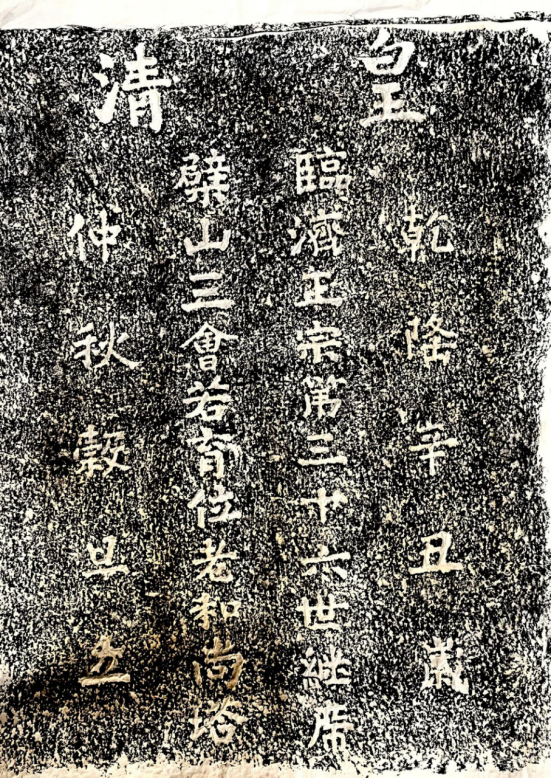 皇清
乾隆辛丑歲
臨濟正宗第三十六世継席
檗山三會若位老和尚塔
仲秋穀旦立